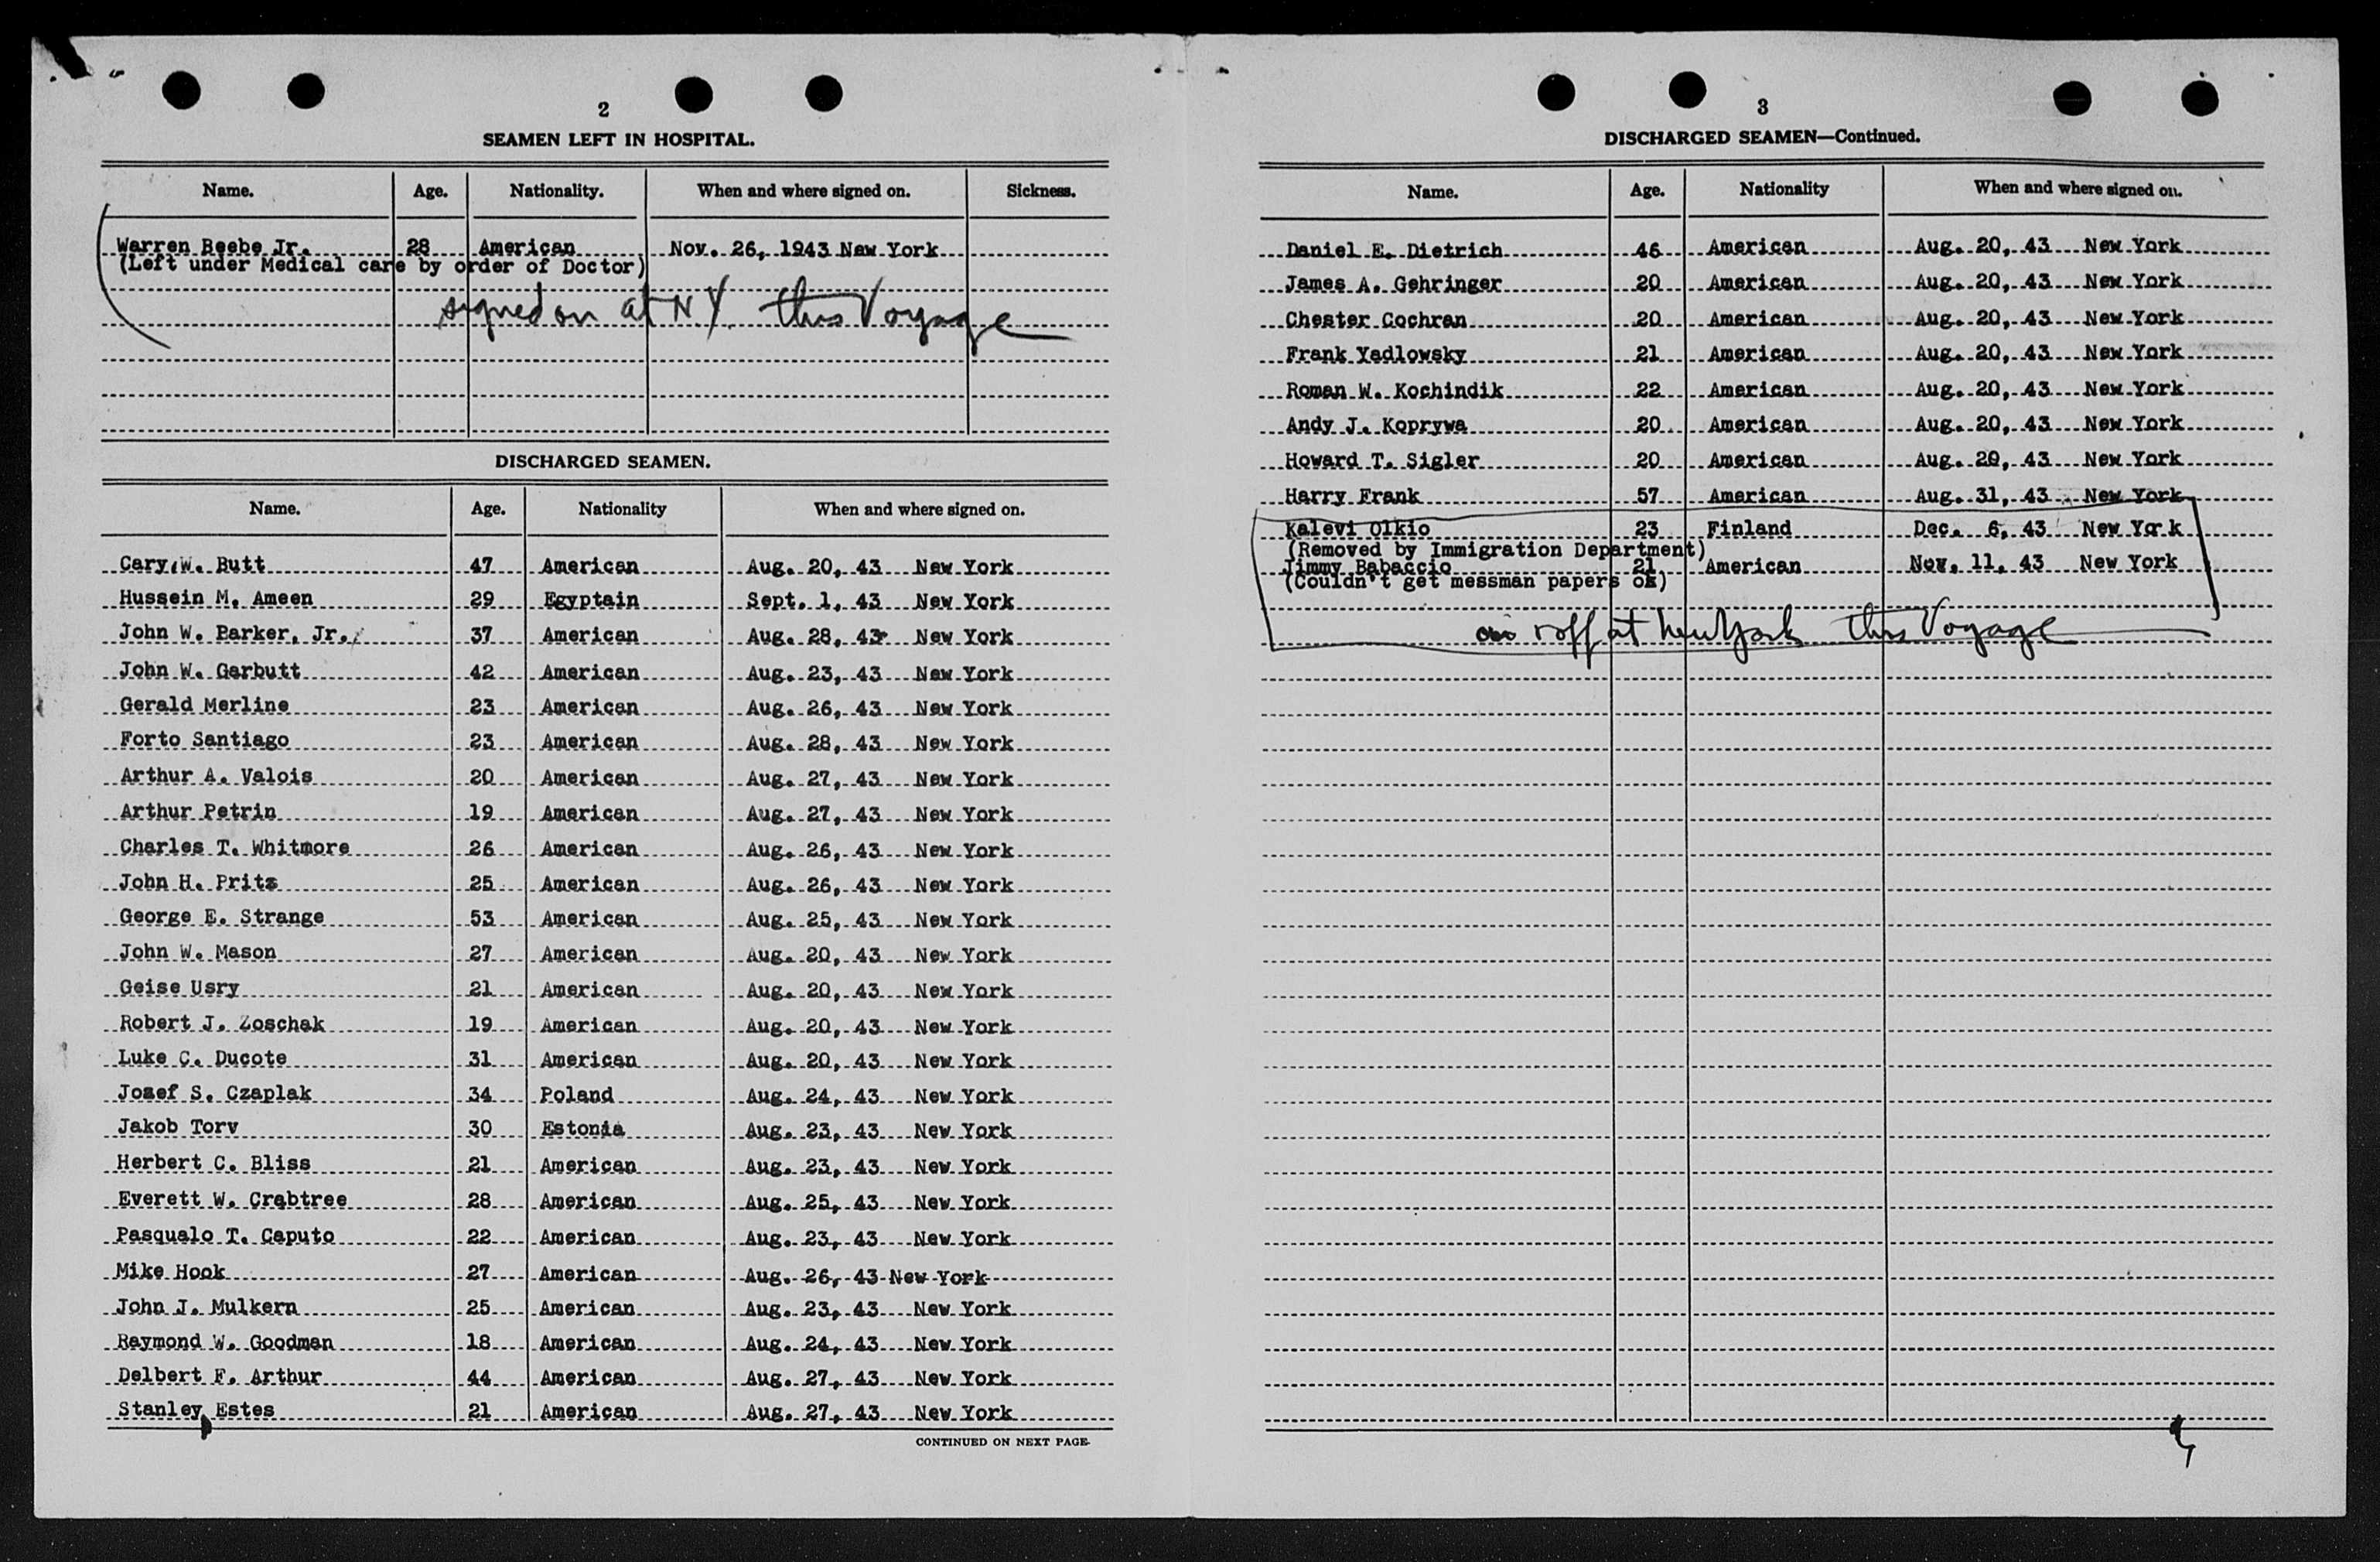 2
SEAMEN LEFT IN HOSPITAL.
Name. Age. Nationality. When and where signed on. Sickness.
Warren Beebe Jr. 28 American Nov. 26, 1943 New York
(Left under Medical care by order of Doctor)
signed on at N.Y. this Voyage
DISCHARGED SEAMEN.
Name. Age. Nationality When and where signed on.
Cary W. Butt 47 American Aug. 20, 43 New York
Hussein M. Ameen 29 Egyptain Sept. 1, 43 New York
John W. Parker, Jr. 37 American Aug. 28, 43 New York
John W. Garbutt 42 American Aug. 23, 43 New York
Gerald Merline 23 American Aug. 26, 43 New York
Forto Santiago 23 American Aug. 28, 43 New York
Arthur A. Valois 20 American Aug. 27, 43 New York
Arthur Petrin 19 American Aug. 27, 43 New York
Charles T. Whitmore 26 American Aug. 26, 43 New York
John H. Prits 25 American Aug. 26, 43 New York
George E. Strange 53 American Aug. 25, 43 New York
John W. Mason 27 American Aug. 20, 43 New York
Geise Usry 21 American Aug. 20, 43 New York
Robert J. Zoschak 19 American Aug. 20, 43 New York
Luke C. Ducote 31 American Aug. 20, 43 New York
Josef S. Czaplak 34 Poland Aug. 24, 43 New York
Jakob Torv 30 Estonia Aug. 23, 43 New York
Herbert C. Bliss 21 American Aug. 23, 43 New York
Everett W. Crabtree 28 American Aug. 25, 43 New York
Pasqualo T. Caputo 22 American Aug. 23, 43 New York
Mike Hook 27 American Aug. 26, 43 New York
John J. Mulkern 25 American Aug. 23, 43 New York
Raymond W. Goodman 18 American Aug. 24, 43 New York
Delbert F. Arthur 44 American Aug. 27, 43 New York
Stanley Estes 21 American Aug. 27, 43 New York
CONTINUED ON NEXT PAGE
3
DISCHARGED SEAMEN—Continued.
Name. Age. Nationality When and where signed on.
Daniel E. Dietrich 46 American Aug. 20, 43 New York
James A. Gehringer 20 American Aug. 20, 43 New York
Chester Cochran 20 American Aug. 20, 43 New York
Frank Yadlowsky 21 American Aug. 20, 43 New York
Roman W. Kochindik 22 American Aug. 20, 43 New York
Andy J. Koprywa 20 American Aug. 20, 43 New York
Howard T. Sigler 20 American Aug. 20, 43 New York
Harry Frank 57 American Aug. 31, 43 New York
Kalevi Olkio 23 Finland Dec. 6, 43 New York
(Removed by Immigration Department)
Jimmy Babaccio 21 American Nov. 11, 43 New York
(Couldn't get messman papers ok)
off at New York this Voyage